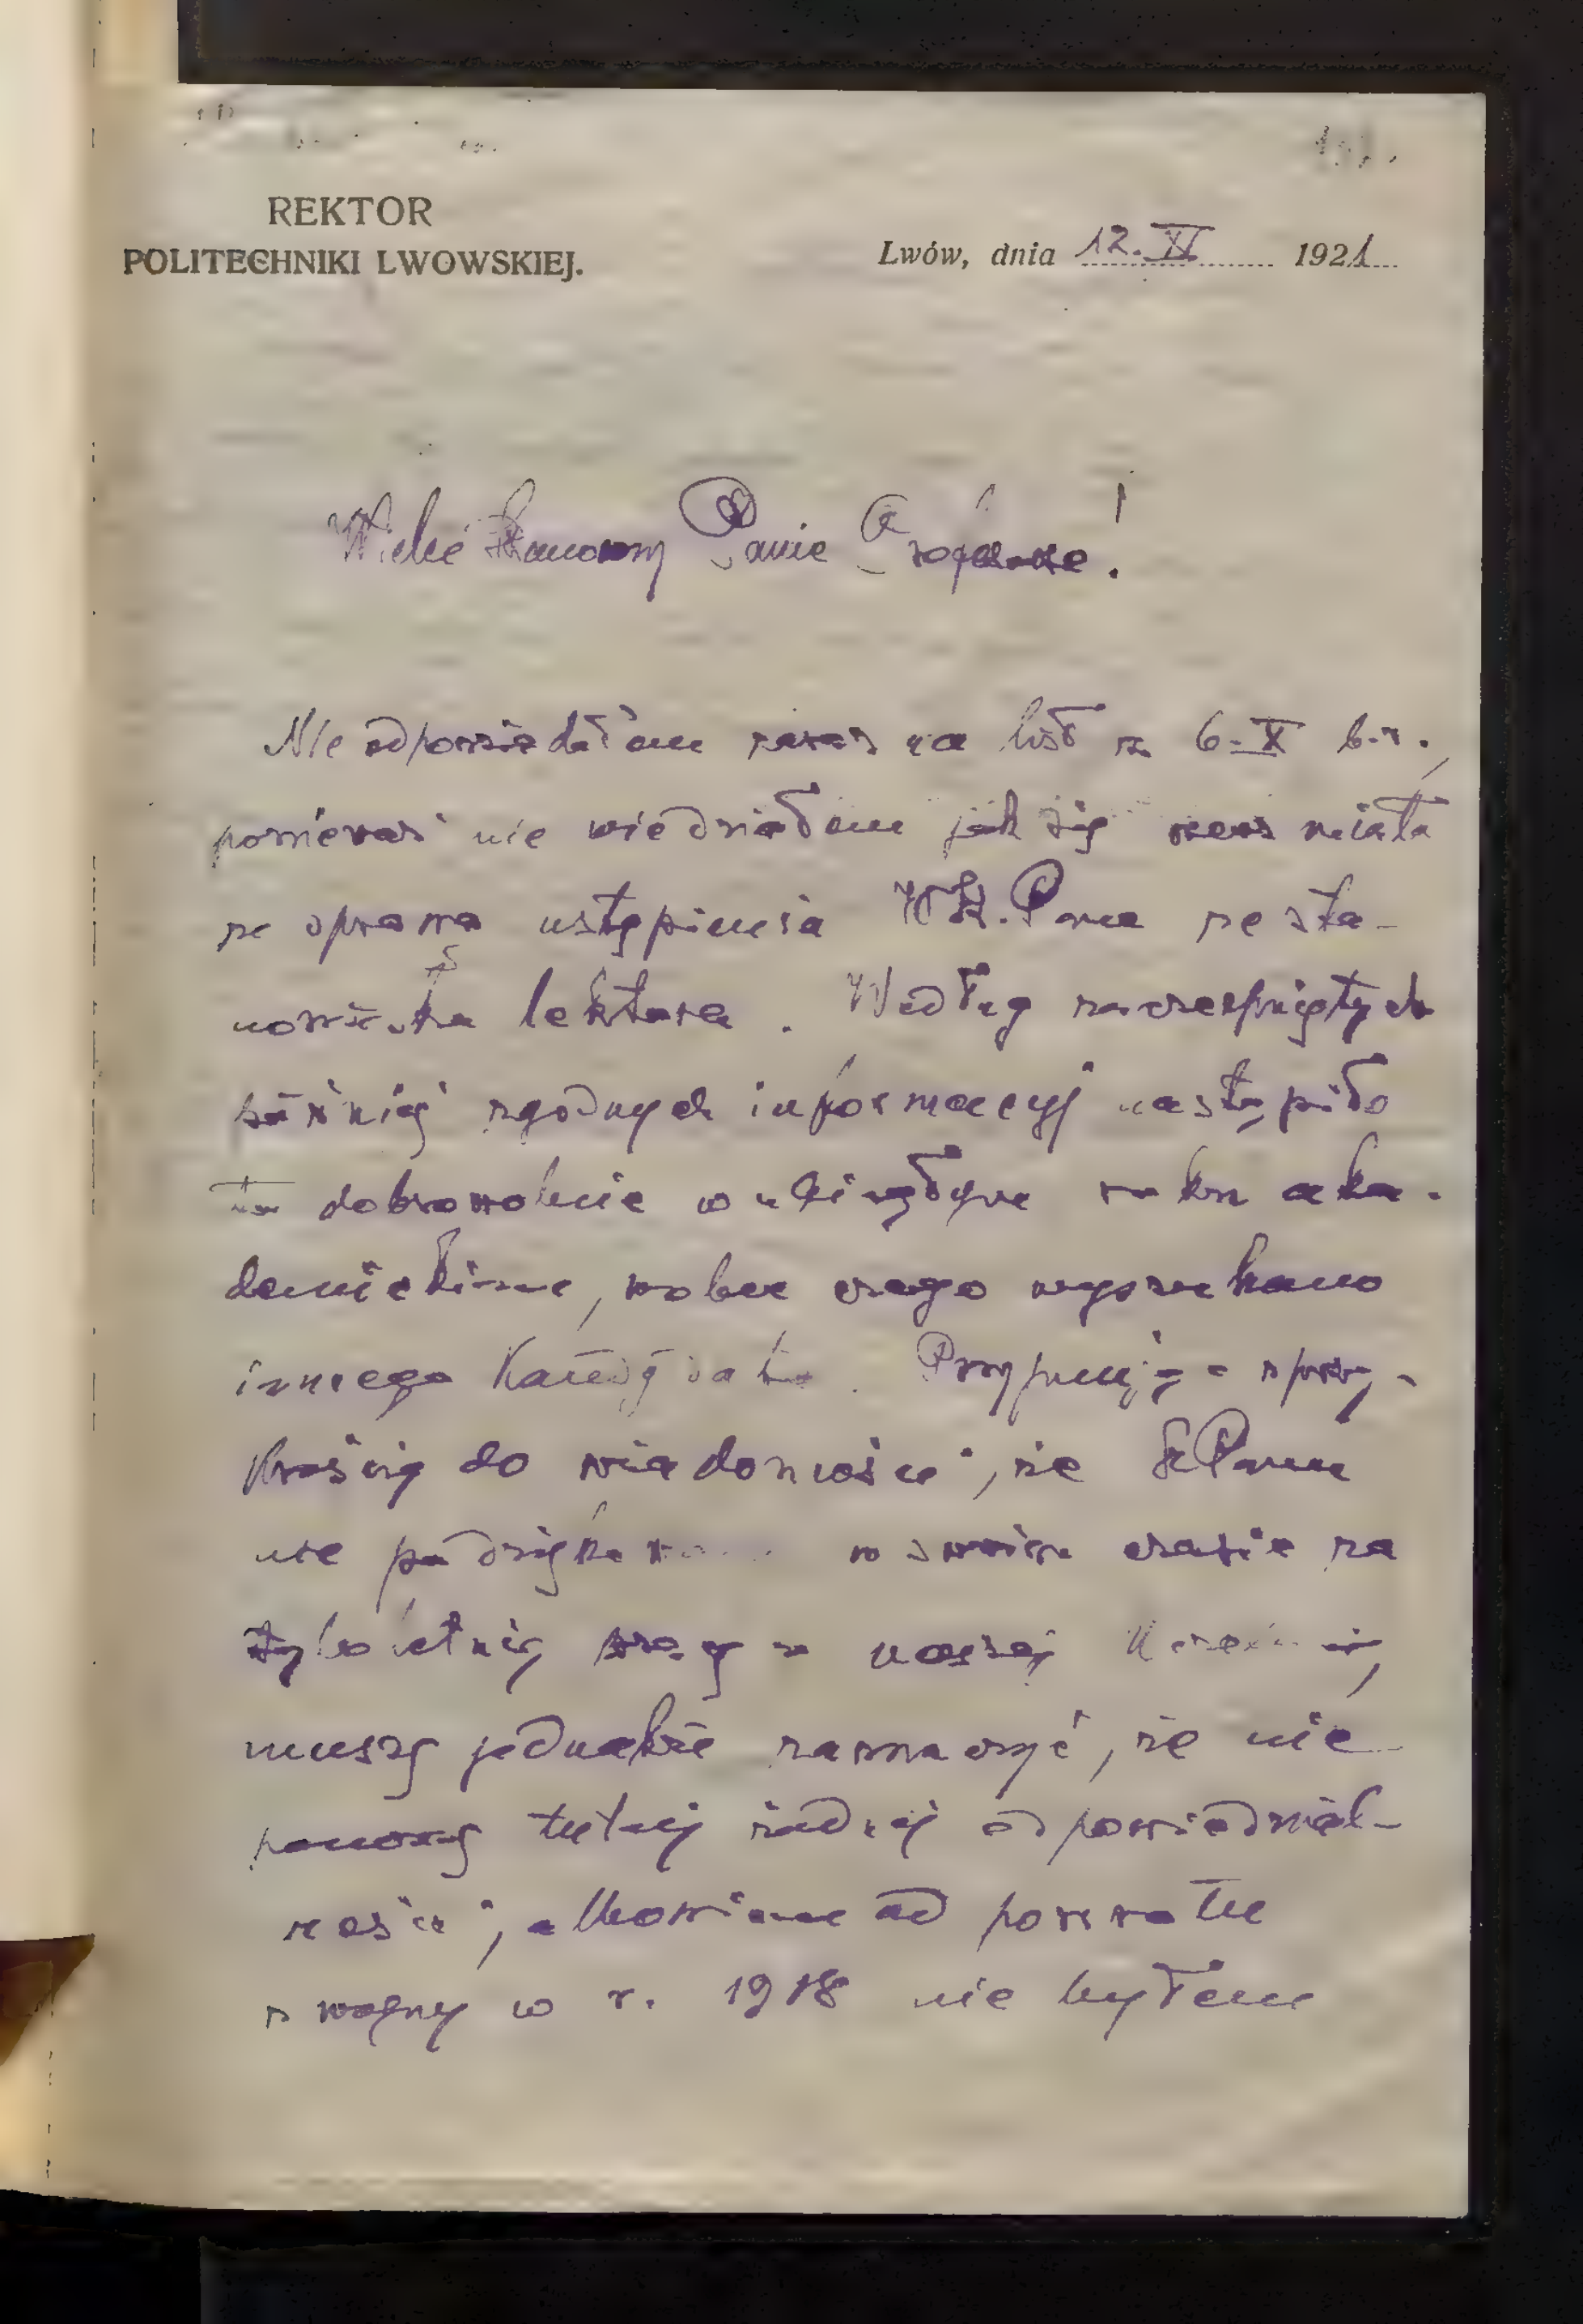 REKTOR
POLITECHNIKI LWOWSKIEJ.
Lwów, dnia 12. XI 1921
Wielce Szanowny Panie Profesorze!
Nie odpowiedziałem zaraz na list z 6. X b.r.,
ponieważ nie wiedziałem jak się rzecz miała
ze sprawą ustąpienia WSz. Pana ze sta-
nowiska lektora. Według zaczerpniętych
później zgodnych informacyj nastąpiło
to dobrowolnie w ubiegłym roku aka-
demickim, wobec czego wyszukano
innego kandydata. Przyjmuję z przy-
krością do wiadomości, że Sz Panu
nie podziękowano w swoim czasie za
tyloletnią pracę w naszej Uczelni,
muszę jednakże zaznaczyć, że nie
ponoszę tutaj żadnej odpowiedzial-
ności, albowiem od powrotu
z wojny w r. 1918 nie byłem